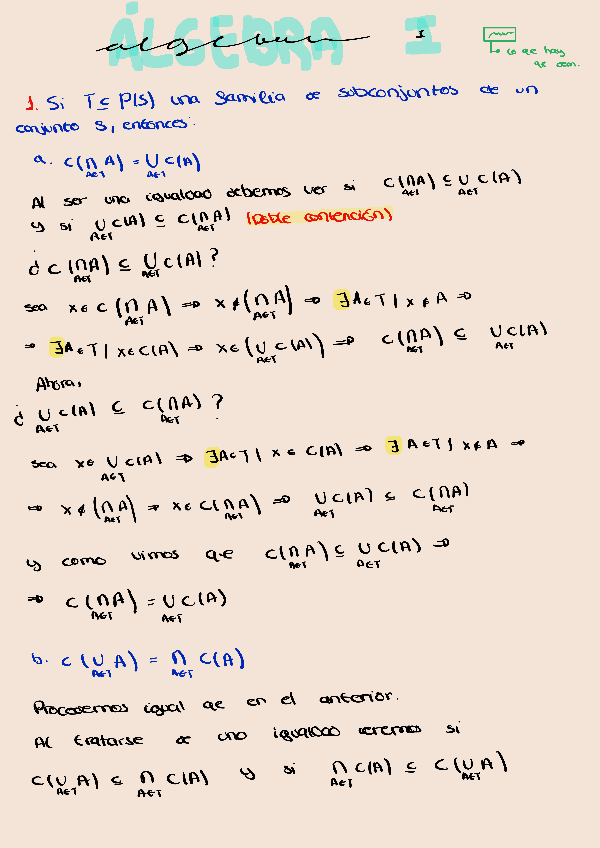 ÁLGEBRA I
algebra I
lo que hay que dem.
1. Si T ⊆ P(S) una familia de subconjuntos de un
conjunto S, entonces:
a. C(⋂_{A∈T} A) = ⋃_{A∈T} C(A)
Al ser una igualdad debemos ver si C(⋂_{A∈T} A) ⊆ ⋃_{A∈T} C(A)
y si ⋃_{A∈T} C(A) ⊆ C(⋂_{A∈T} A) (Doble contención)
¿C(⋂_{A∈T} A) ⊆ ⋃_{A∈T} C(A)?
sea x ∈ C(⋂_{A∈T} A) ⇒ x ∉ (⋂_{A∈T} A) ⇒ ∃A∈T | x ∉ A ⇒
⇒ ∃A∈T | x∈C(A) ⇒ x∈(⋃_{A∈T} C(A)) ⇒ C(⋂_{A∈T} A) ⊆ ⋃_{A∈T} C(A)
Ahora,
¿⋃_{A∈T} C(A) ⊆ C(⋂_{A∈T} A)?
sea x∈ ⋃_{A∈T} C(A) ⇒ ∃A∈T | x ∈ C(A) ⇒ ∃A∈T | x∉A ⇒
⇒ x ∉ (⋂_{A∈T} A) ⇒ x∈C(⋂_{A∈T} A) ⇒ ⋃_{A∈T} C(A) ⊆ C(⋂_{A∈T} A)
y como vimos que C(⋂_{A∈T} A) ⊆ ⋃_{A∈T} C(A) ⇒
⇒ C(⋂_{A∈T} A) = ⋃_{A∈T} C(A)
b. C(⋃_{A∈T} A) = ⋂_{A∈T} C(A)
Procedemos igual qe en el anterior.
Al tratarse de una igualdad veremos si
C(⋃_{A∈T} A) ⊆ ⋂_{A∈T} C(A) y si ⋂_{A∈T} C(A) ⊆ C(⋃_{A∈T} A)